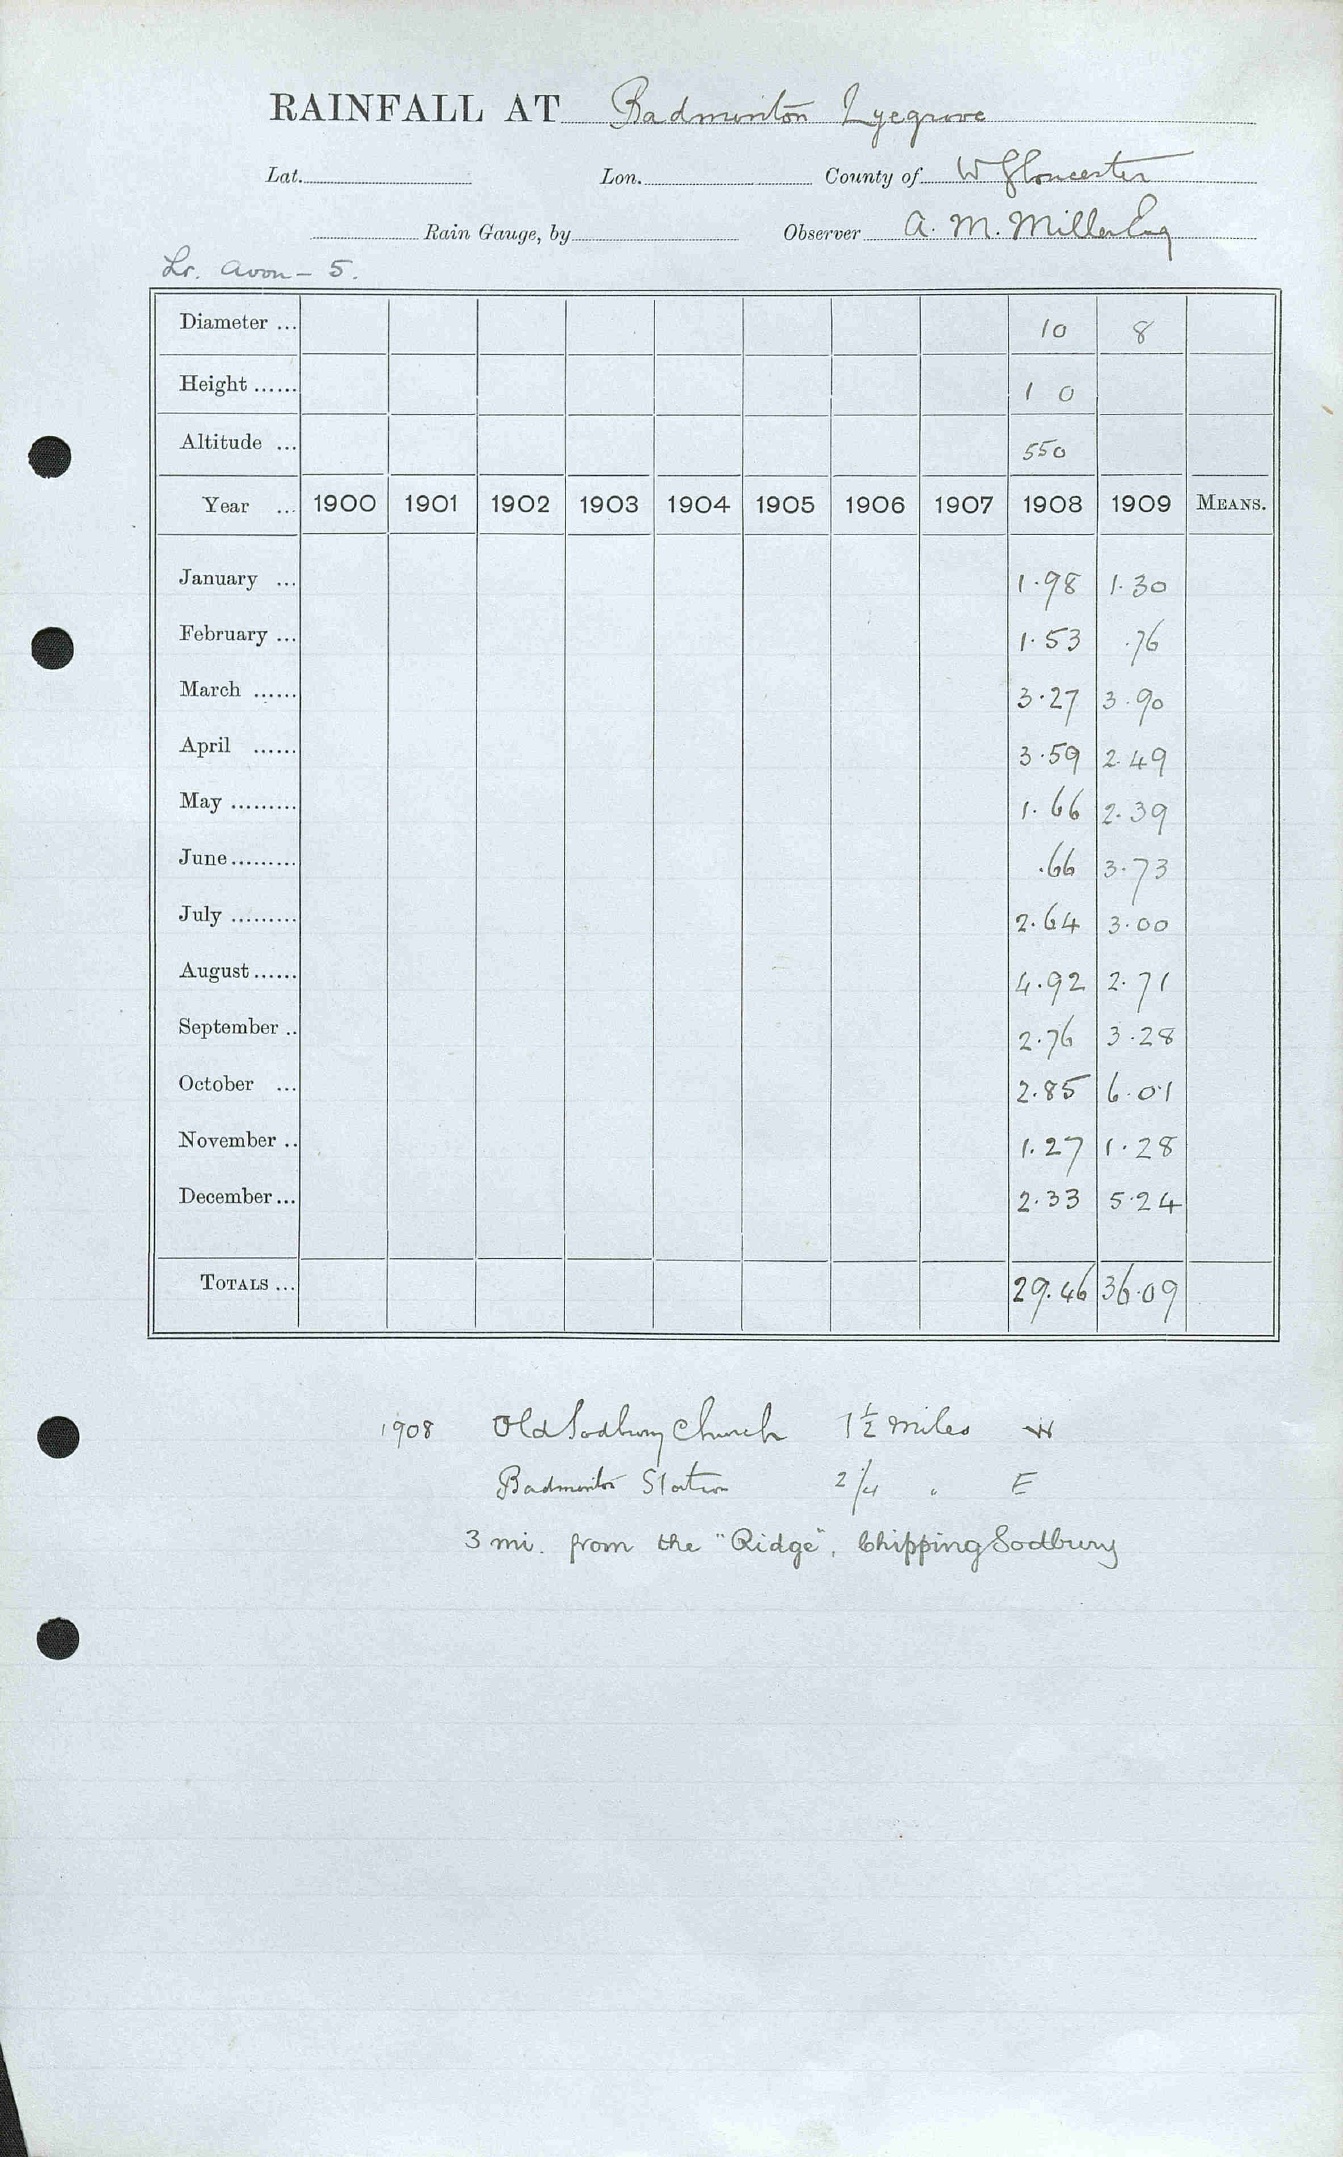 RAINFALL AT Badminton Lyegrove
Lat. Lon. County of W Gloucester
Rain Gauge, by Observer A. M. Miller Esq
Lr. Avon - 5.
Diameter ... 10 8
Height ...... 1 0
Altitude ... 550
Year ... 1900 1901 1902 1903 1904 1905 1906 1907 1908 1909 MEANS.
January ... 1.98 1.30
February ... 1.53 .76
March ...... 3.27 3.90
April ...... 3.59 2.49
May ......... 1.66 2.39
June ......... .66 3.73
July ......... 2.64 3.00
August ...... 4.92 2.71
September .. 2.76 3.28
October ... 2.85 6.01
November .. 1.27 1.28
December ... 2.33 5.24
TOTALS ... 29.46 36.09
1908 Old Sodbury Church 1 1/2 miles W
Badminton Station 2 1/4 " E
3 mi. from the "Ridge", Chipping Sodbury